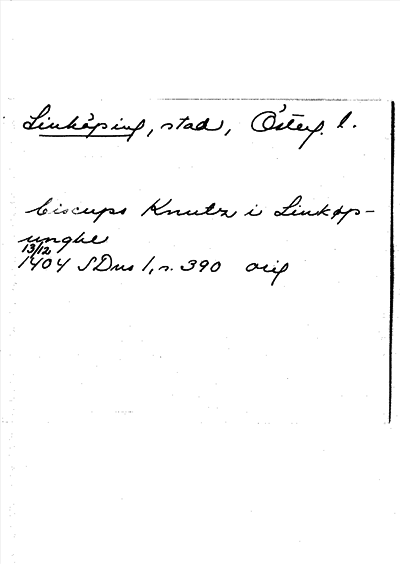 Linköping, stad, Österg. l.
biscups Knutz i Linkøp-
unghe
13/12
1404 SDns 1, s. 390 orig